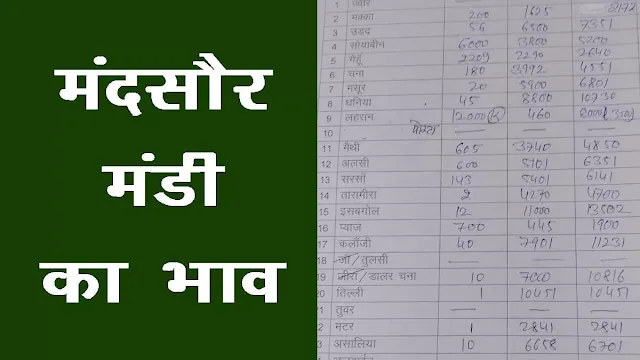 मंदसौर
मंडी
का भाव
1 ज्वार 1625 2172
2 मक्का 200 6500 7351
3 उड़द 55
4 सोयाबीन 6000 3800 5200
5 गेहूँ 2209 2290 2640
6 चना 180 3992 4551
7 मसूर 20 5900 6801
8 धनिया 45 8800 10730
9 लहसन 12000 460
10
11 मैथी 605 3740 4850
12 अलसी 600 5101 6351
13 सरसों 143 5401 6141
14 तारामीरा 2 4270 4700
15 इसबगोल 12 11000 13502
16 प्याज 700 445 1900
17 कलौंजी 40 7901 11231
18 जौ/तुलसी
19 जीरा/डालर चना 10 7000 10816
20 तिल्ली 1 10451 10451
21 तुवर
2 मटर 1 2841 2841
3 असालिया 10 6658 6701